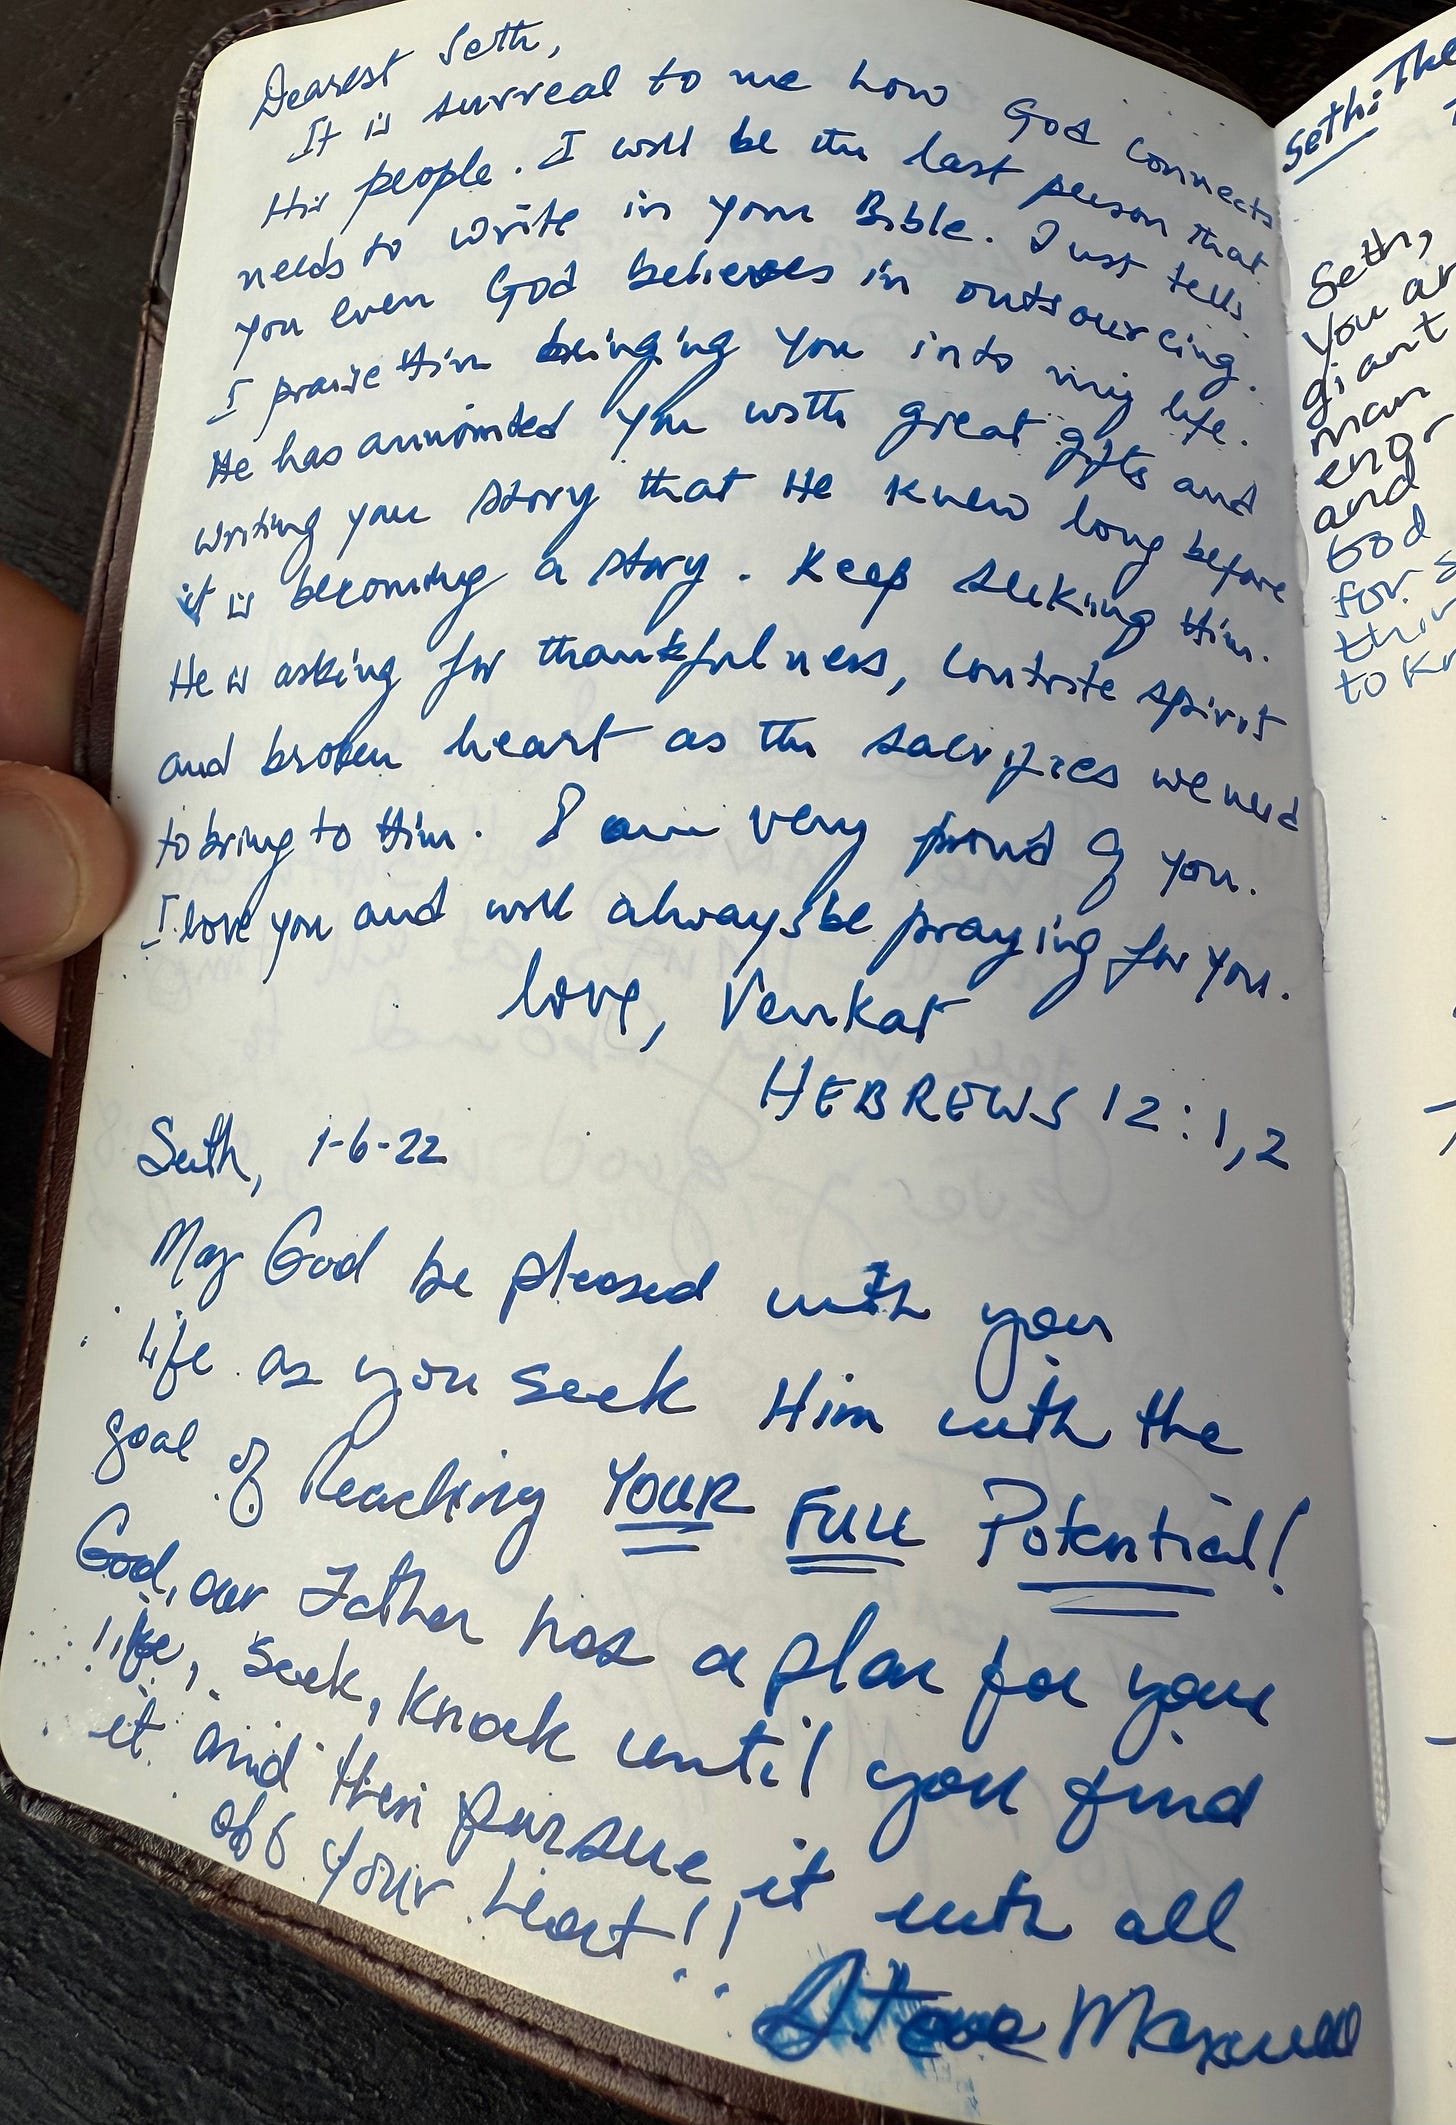 Dearest Seth,
It is surreal to me how God connects
His people. I will be the last person that
needs to write in your Bible. Just tells
you even God believes in outsourcing.
I praise Him bringing you into my life.
He has annointed you with great gifts and
writing your story that He knew long before
it is becoming a story. Keep seeking Him.
He is asking for thankfulness, contrite spirit
and broken heart as the sacrifices we need
to bring to Him. I am very proud of you.
I love you and will always be praying for you.
Love, Venkat
HEBREWS 12:1,2
Seth, 1-6-22
May God be pleased with your
life as you seek Him with the
goal of Reaching YOUR FULL Potential!
God, our Father has a plan for your
life, seek, knock until you find
it and then pursue it with all
of your heart!!
Steve Maxwell
Seth: The
Seth,
You ar
giant
man
enor
and
God
for s
thin
to kn